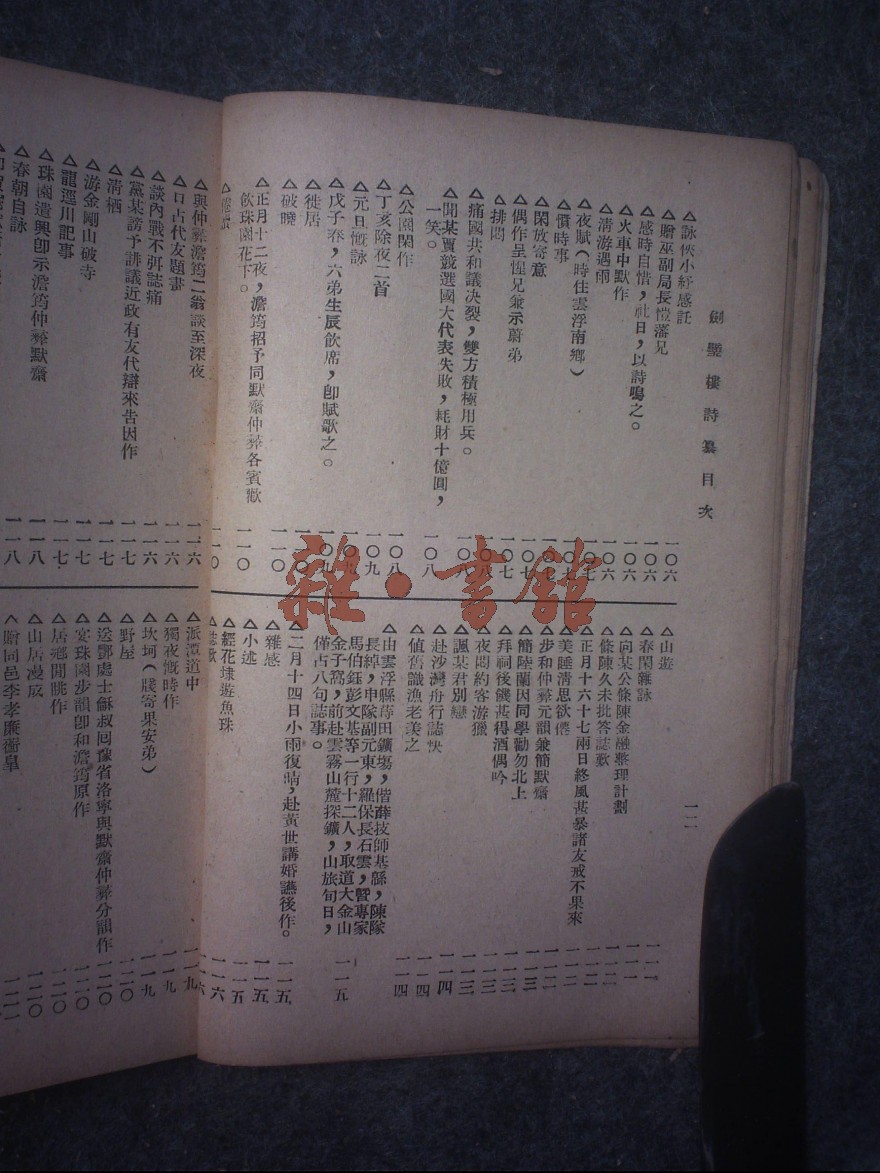 劍璧樓詩纂目次
一二
△詠俠小紓感託
一〇六
△贈巫副局長愷藩兄
一〇六
△感時自惜，社日，以詩鳴之。
一〇六
△火車中默作
一〇六
△淸游遇雨
一〇六
△夜賦（時住雲浮南鄉）
一〇七
△憤時事
一〇七
△閑放寄意
一〇七
△偶作呈惺兄兼示蔚弟
一〇七
△排悶
一〇七
△痛國共和議決裂，雙方積極用兵。
一〇八
△聞某賈競選國大代表失敗，耗財十億圓，
一笑。
一〇八
△公園閑作
一〇八
△丁亥除夜二首
一〇九
△元旦慨詠
一〇九
△戊子春，六弟生辰飮席，卽賦歌之。
一〇九
△徙居
△破曉
一一〇
△正月十二夜，澹筠招予同默齋仲彜各賓歡
飮珠園花下。
一一〇
一一〇
△與仲彜澹筠二翁談至深夜
一一六
△口占代友題畫
一一六
△談內戰不弭誌痛
一一六
△黨某謗予誹議近政有友代辯來吿因作
一一七
△淸栖
一一七
△游金剛山破寺
一一七
△龍逕川記事
一一七
△珠園遣興卽示澹筠仲彜默齋
一一八
△春朝自詠
一一八
△山遊
一一一
△春閑雜詠
一一一
△向某公條陳金融整理計劃
一一一
△條陳久未批答誌歎
一一二
△正月十六十七兩日終風甚暴諸友戒不果來
一一二
△美睡淸思欲僊
一一二
△步和仲彜元韻兼簡默齋
一一二
△簡陸蘭因同學勸勿北上
一一三
△拜祠後饑甚得酒偶吟
一一三
△夜悶約客游獵
一一三
△諷某君別戀
一一三
△赴沙灣舟行誌快
一一四
△値舊識漁老美之
一一四
△由雲浮縣蒔田鑛塲，偕薛技師基緜，陳隊
長綽，申隊副元東，羅保長石雲，曁專家
馬伯鈺彭文基等一行十二人，取道大金山
金子窩，前赴雲霧山麓探鑛，山旅旬日，
僅占八句誌事。
一一五
△二月十四日小雨復晴，赴黃世講婚讌後作。
一一五
△雜感
一一五
△小述
一一五
△經花埭遊魚珠
一一六
△誌歎
一一六
△派潭道中
一一九
△獨夜慨時作
一一九
△坎坷（牋寄果安弟）
一一九
△野屋
一二〇
△送鄷處士穌叔囘豫省洛寧與默齋仲彜分韻作
一二〇
△宴珠園步韻卽和澹筠原作
一二〇
△居鄉閒眺作
一二〇
△山居漫成
一二〇
△贈同邑李孝廉
雜·書館